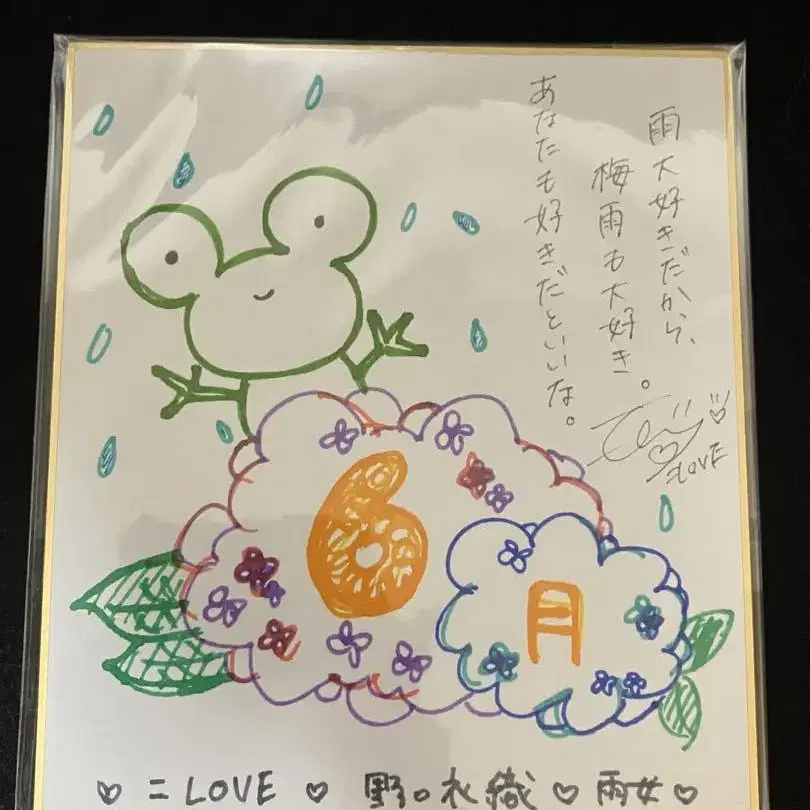 雨大好きだから、
梅雨も大好き。
あなたも好きだといいな。
LOVE
6月
♡ ニLOVE ♡ 野口衣織 ♡ 雨女 ♡